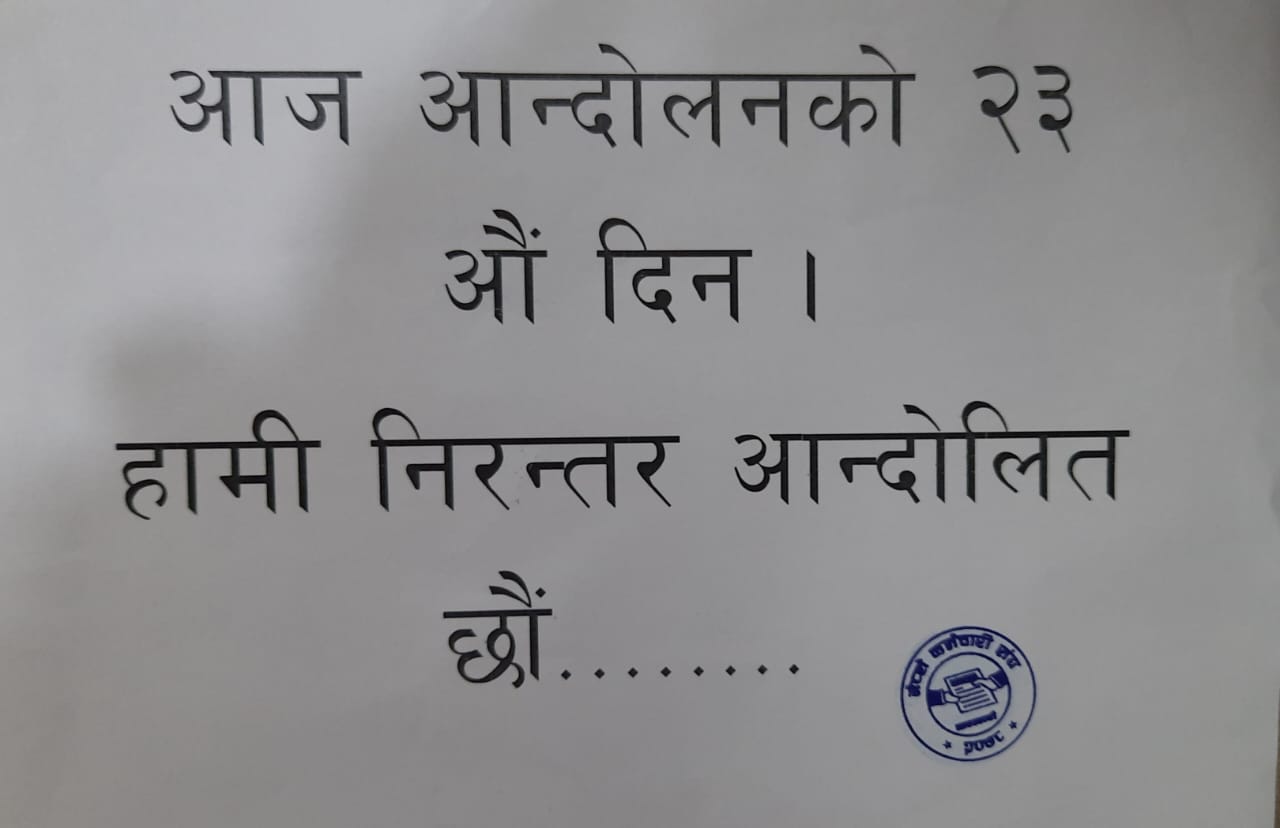 आज आन्दोलनको २३
औं दिन ।
हामी निरन्तर आन्दोलित
छौं........
नेप्से कर्मचारी संघ